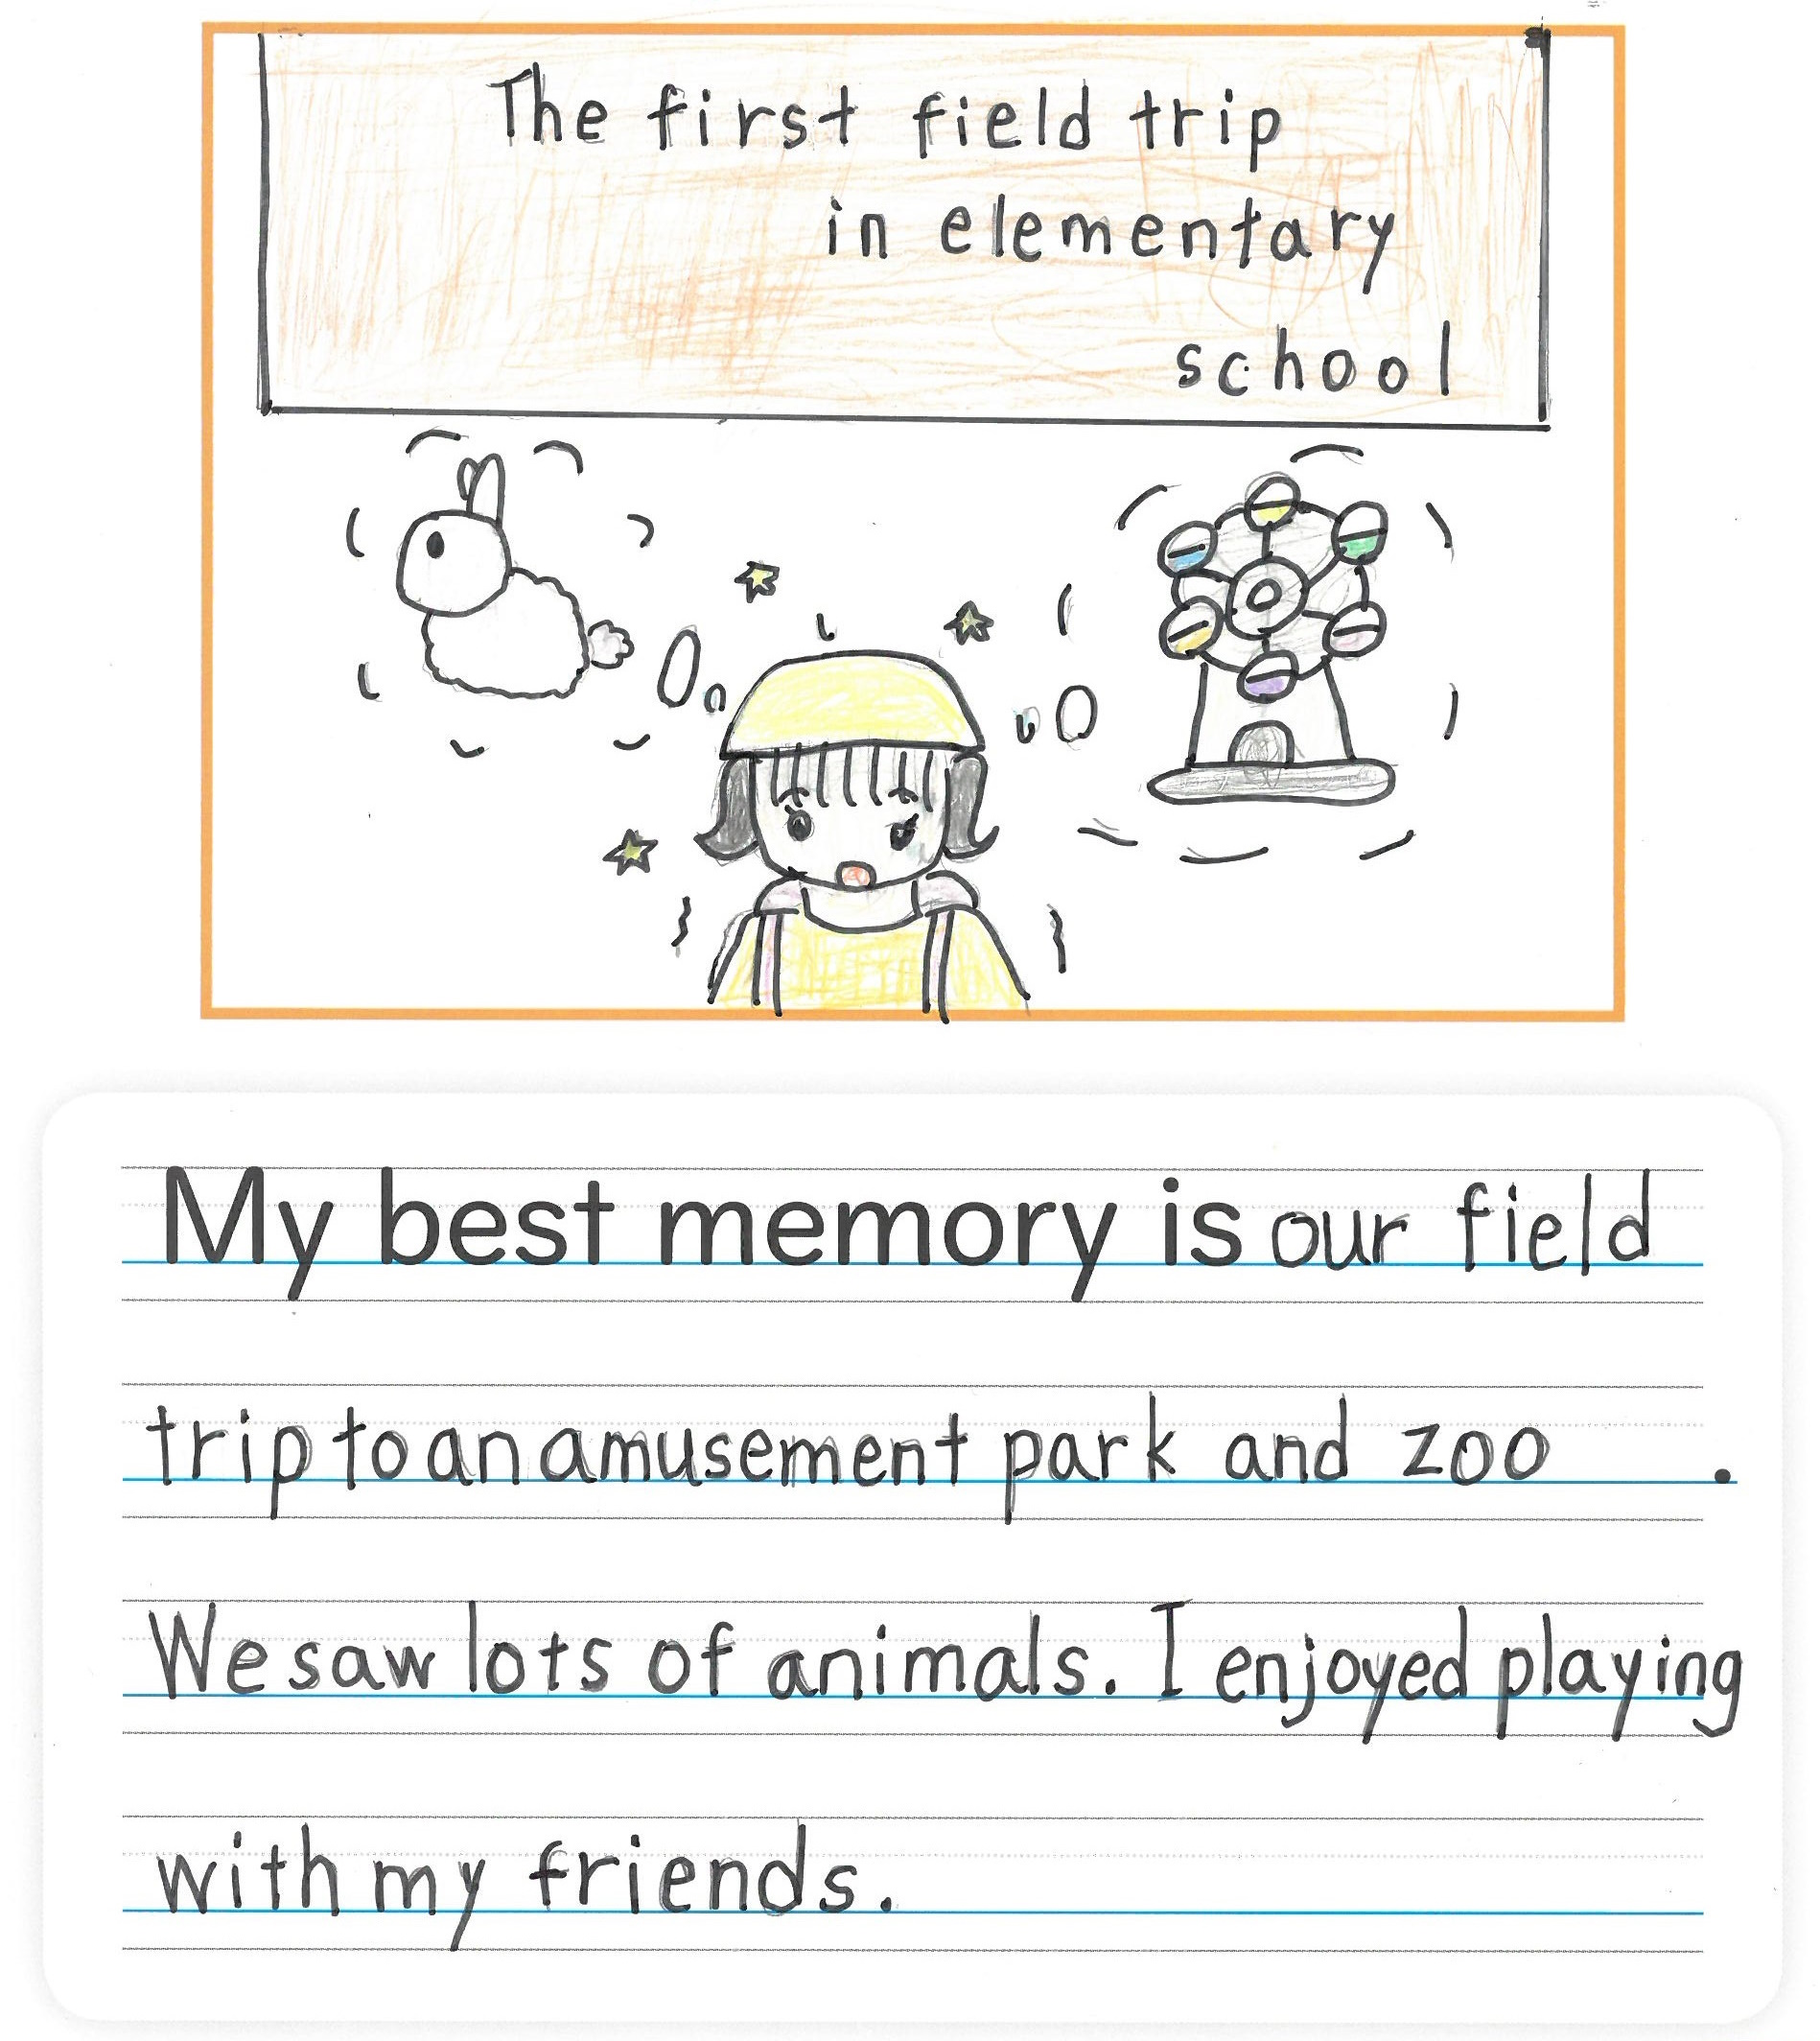 The first field trip
in elementary
school
My best memory is our field
trip to an amusement park and zoo .
We saw lots of animals. I enjoyed playing
with my friends.